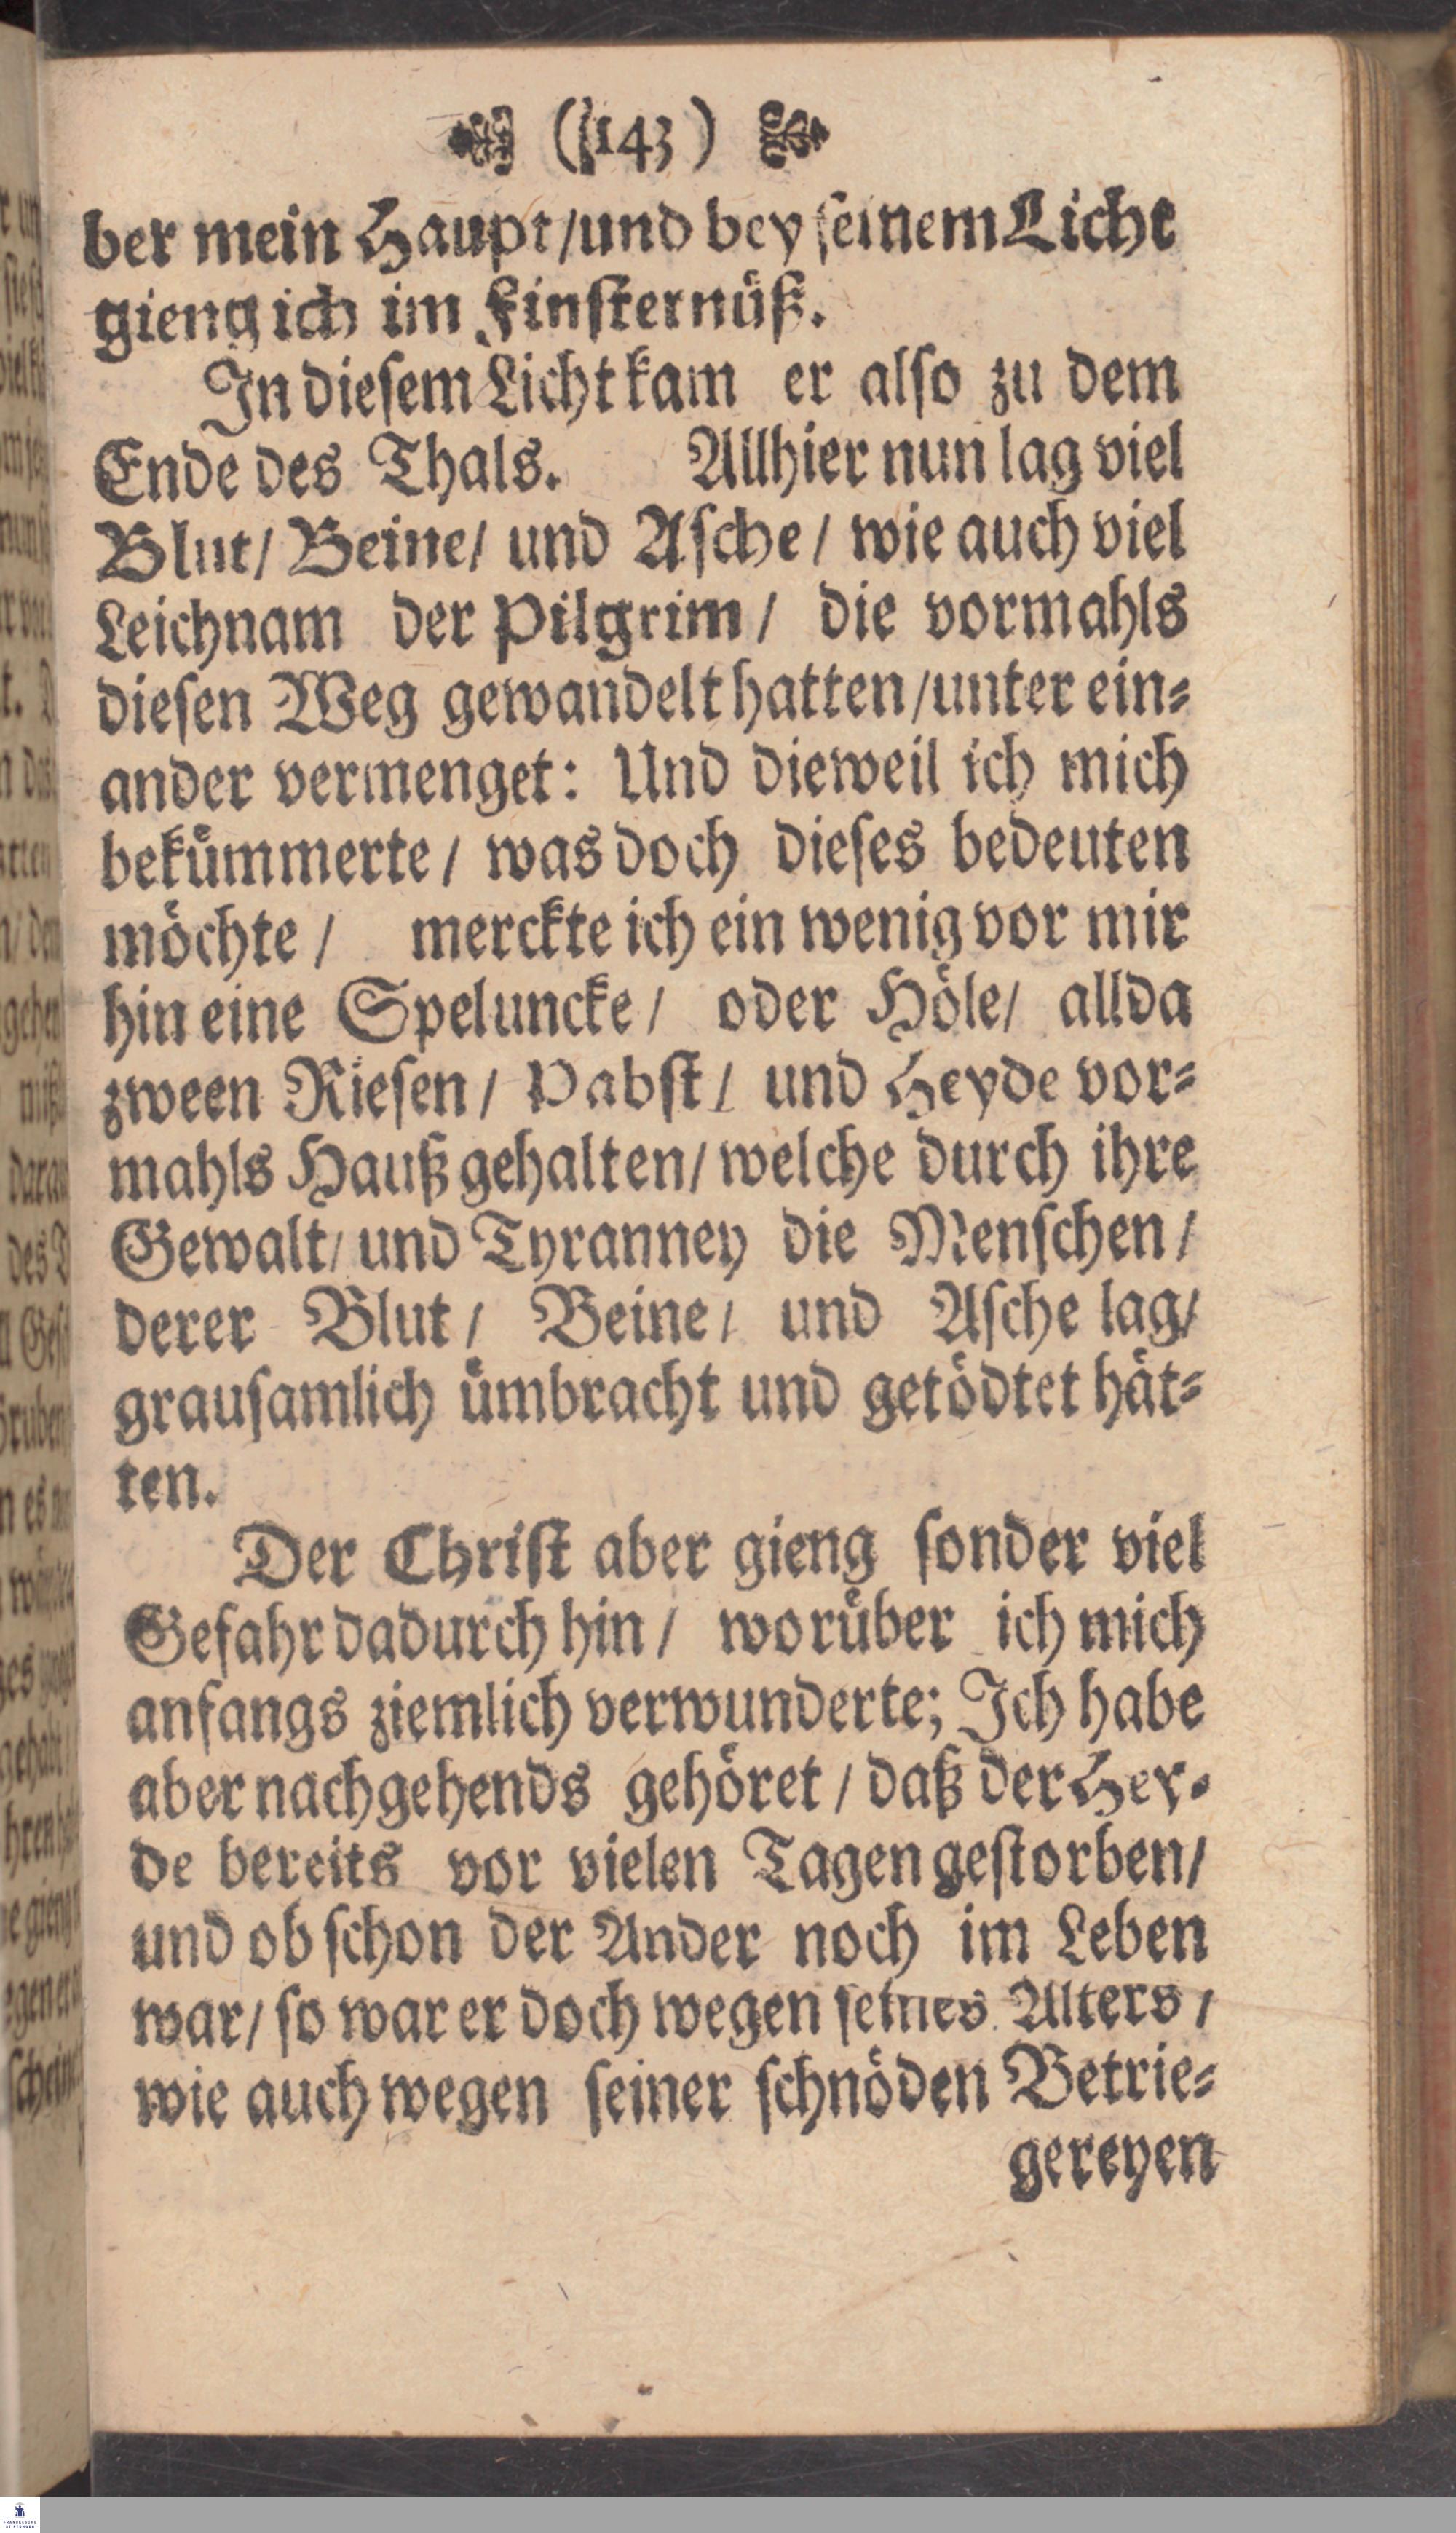 (143)
ber mein Haupt/und bey seinem Licht
gieng ich im Finsternüß.
In diesem Licht kam er also zu dem
Ende des Thals. Allhier nun lag viel
Blut/ Beine/ und Asche/ wie auch viel
Leichnam der Pilgrim/ die vormahls
diesen Weg gewandelt hatten/unter ein-
ander vermenget: Und dieweil ich mich
bekümmerte/ was doch dieses bedeuten
möchte/ merckte ich ein wenig vor mir
hin eine Speluncke/ oder Höle/ allda
zween Riesen/ Pabst/ und Heyde vor-
mahls Hauß gehalten/ welche durch ihre
Gewalt/ und Tyranney die Menschen/
derer Blut/ Beine/ und Asche lag/
grausamlich ümbracht und getödtet hät-
ten.
Der Christ aber gieng sonder viel
Gefahr dadurch hin/ worüber ich mich
anfangs ziemlich verwunderte; Ich habe
aber nachgehends gehöret/ daß der Hey-
de bereits vor vielen Tagen gestorben/
und ob schon der Ander noch im Leben
war/ so war er doch wegen seines Alters/
wie auch wegen seiner schnöden Betrie-
gereyen